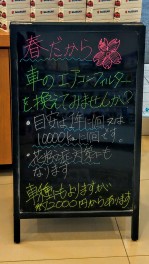 春だから
車のエアコンフィルター
を換えてみませんか?
・目安は1年に1回又は
10000kmに1回です。
・花粉症対策にも
なります
車種にもよりますが
約2000円からあります